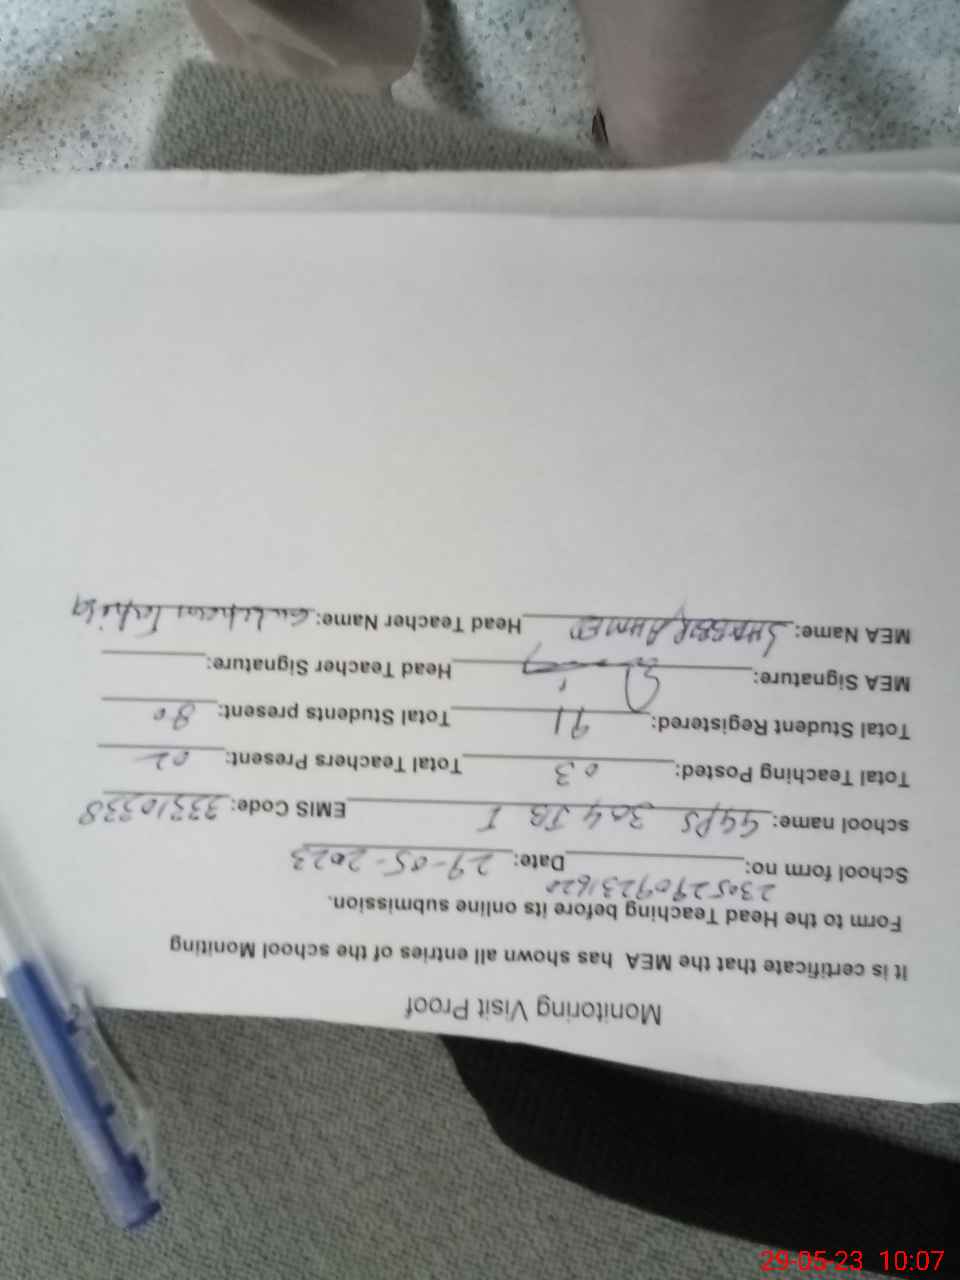 Monitoring Visit Proof
It is certificate that the MEA has shown all entries of the school Moniting
Form to the Head Teaching before its online submission.
School form no: 23052909231620 Date: 29-05-2023
school name: GGPS 304 JB I EMIS Code: 33310338
Total Teaching Posted: 03 Total Teachers Present: 02
Total Student Registered: 91 Total Students present: 80
MEA Signature: Head Teacher Signature:
MEA Name: SHABBIR AHMED Head Teacher Name:
29-05-23 10:07